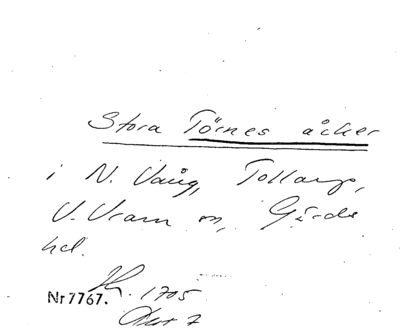 Stora Törnes åcker
i N. Vång, Tollarp,
V. Vram sn, Gärds
hd.
Nr 7767. 1705